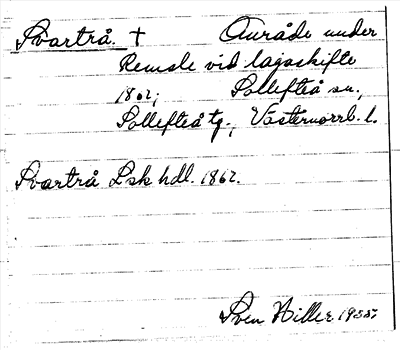 Svartrå. † Område under
Remsle vid lagaskifte
1862; Sollefteå sn.,
Sollefteå tg., Västernorrl. l.
Svartrå Lsk hdl. 1862.
Sven Hiller 1955.